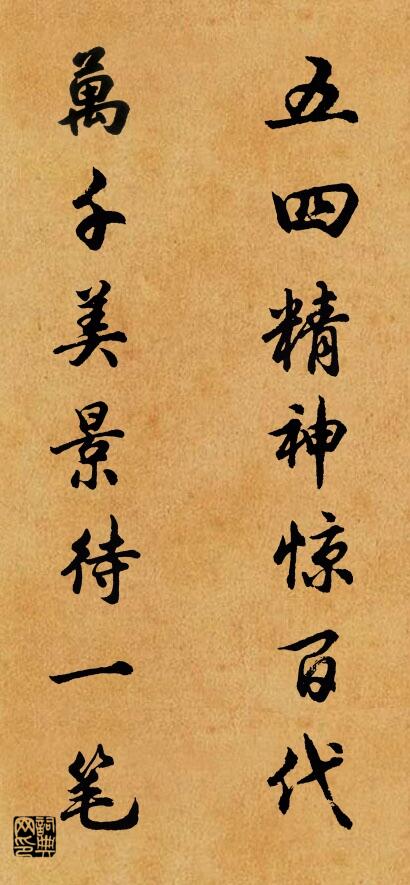 五四精神惊百代
萬千美景待一笔
詞典网印